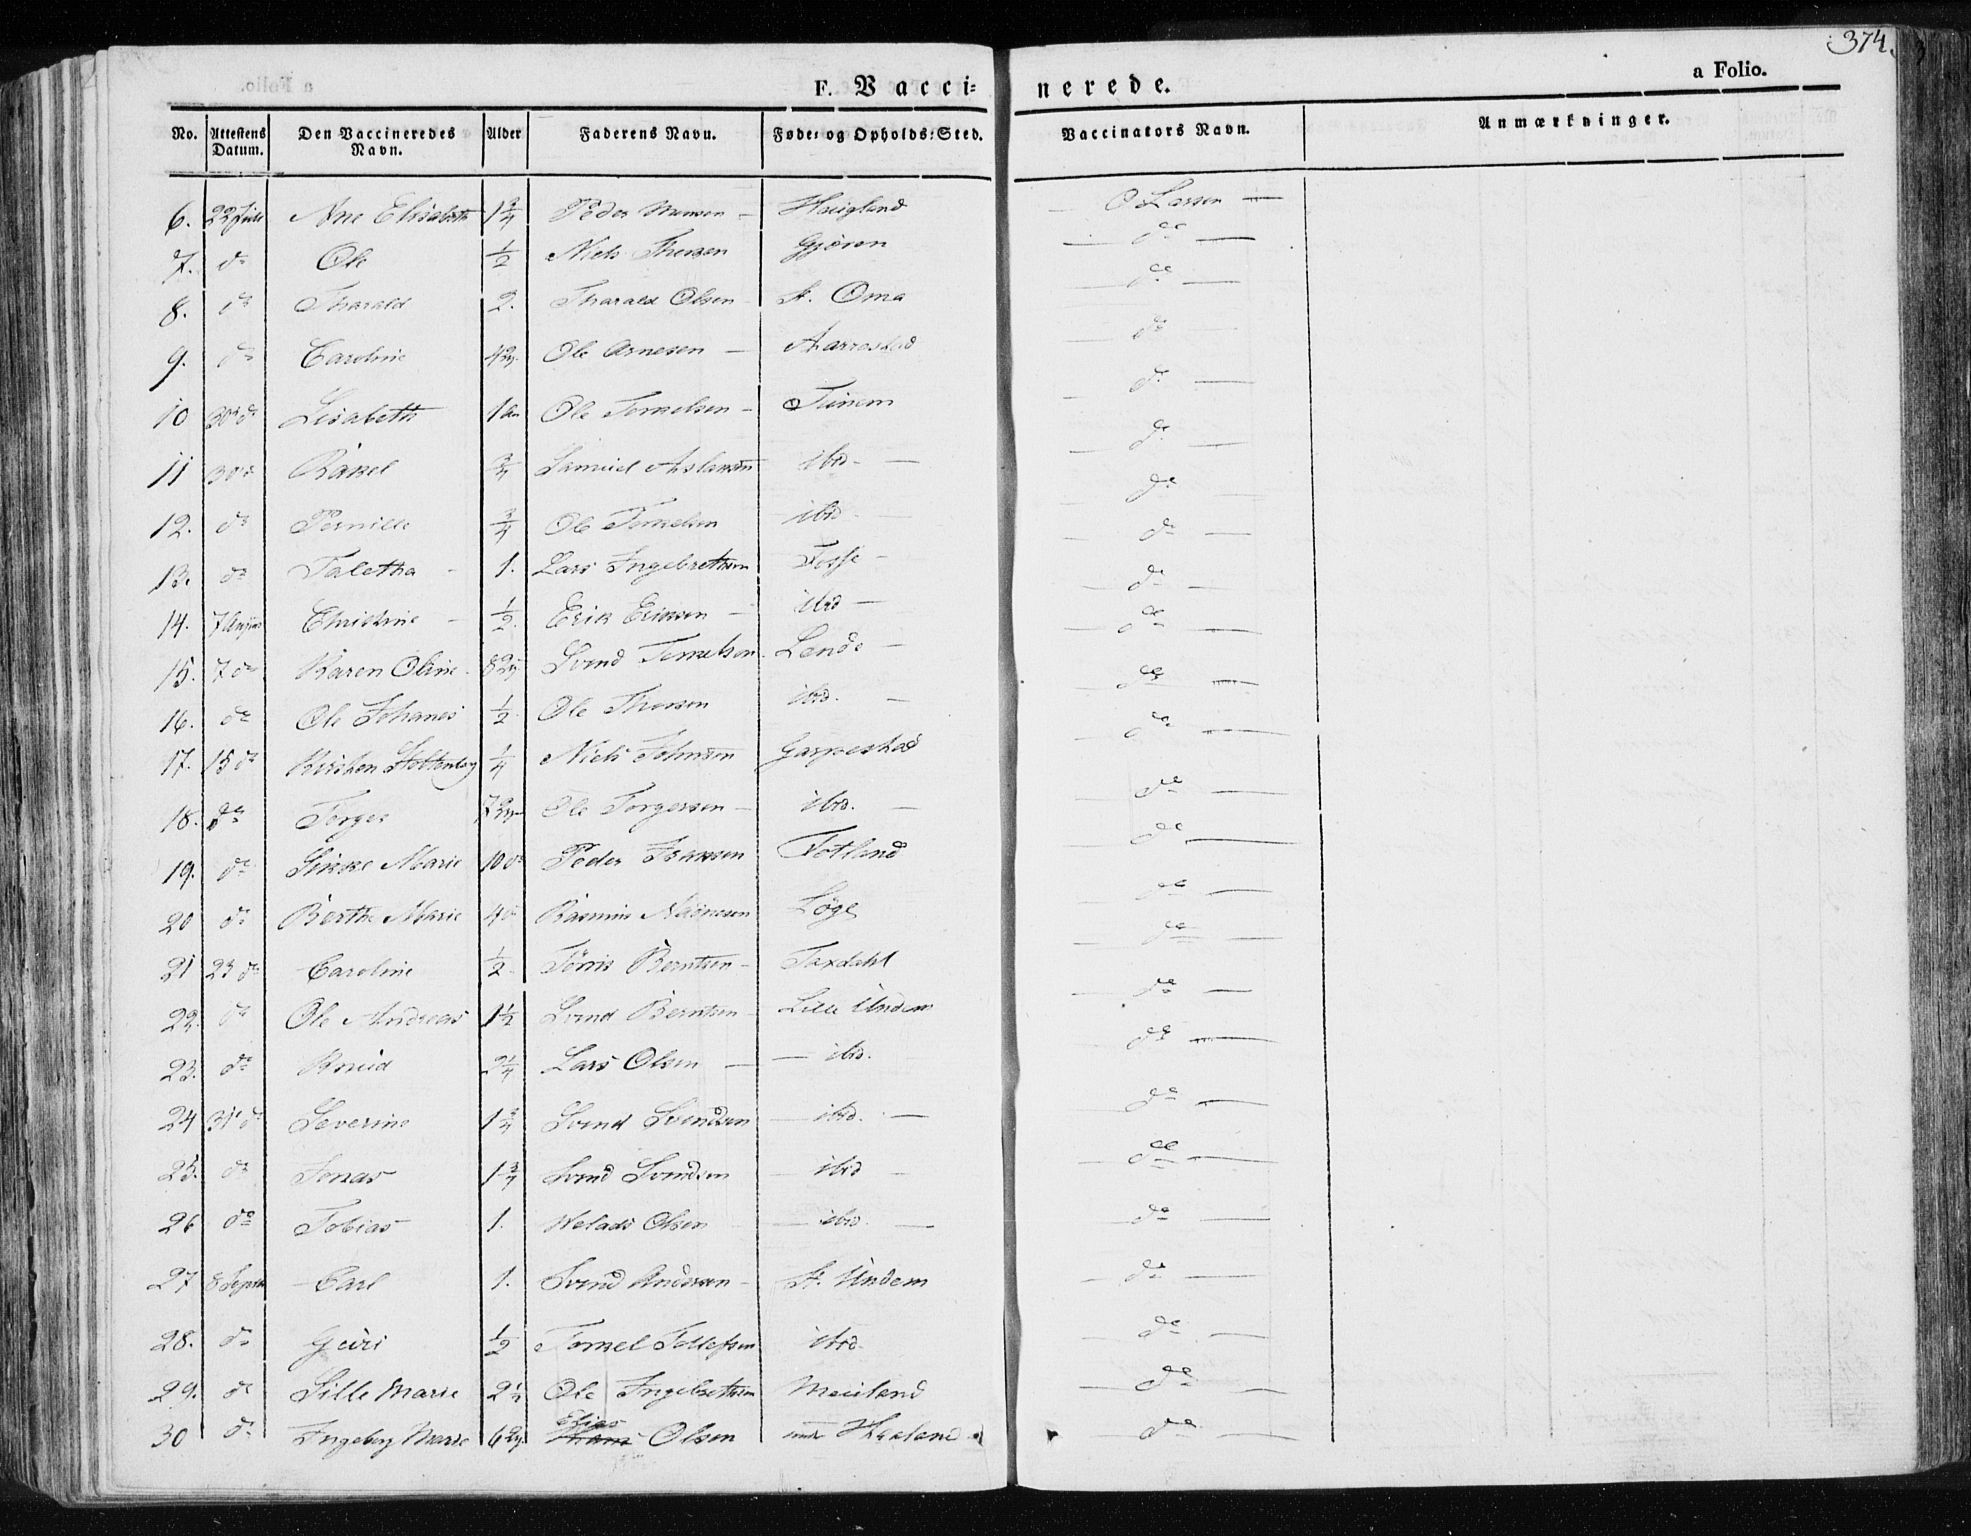 374.
F. Vacci= nerede.
a Folio.
No. Attestens Datum. Den Vaccineredes Navn. Alder Faderens Navn. Føde= og Opholds=Sted. Vaccinators Navn. Anmærkninger.
6. 22 Juli Ane Elisabeth 1 3/4 Peder Monsen - Haugland O Larsen
7. do Ole 1/2 Niels Thorsen Gjeren do
8. do Tharald 2. Tharald Olsen St. Oma do
9. do Caroline Ole Arnesen - Aarrestad do
10 30 do Lisabeth 1 Ole Tonnelsen - Tunem do
11 30 do Rakel 3/4 Samuel Aslaksen ibid - do
12. do Pernille 3/4 Ole Tonnelsen ibid. do
13. do Taletha - 1. Lars Ingebrethsen Fosse - do
14. 7 August Christine - 1/2. Erik Eriksen - ibid - do
15. 7 do Karen Oline. Svend Tonnelsen Lende - do
16. do Ole Johanes 1/2 Ole Thorsen ibid. - do
17. 15 do Kirsten Stoltenberg 1/4 Niels Johnsen Garpestad do
18. do Torger Ole Torgersen - ibid. - do
19. do Sikke Marie 10 do Peder Isaksen Fotland do
20 do Berthe Marie 4 do Rasmus Løge do
21 23 do Caroline 1/2. Tønis Berntsen - Taxdahl do
22. do Ole Andreas 1 1/2 Svend Berntsen - Lille Undem do
23. do Knud 2 1/4 Lars Olsen - ibid. do
24 31 do Severine 1 3/4 Svend Svendsen - ibid. - do
25. do Jonas 1 3/4 Svend Svendsen - ibid - do
26 do Tobias 1. Olsen - ibid. - do
27 8 Septbr Carl 1. Svend Andersen - St. Undem do
28. do Guri 1/2 Tonnel Tollefsen ibid. do
29. do Sille Marie Ole Ingebrethsen do
30 do Ingeborg Marie Elias Olsen do